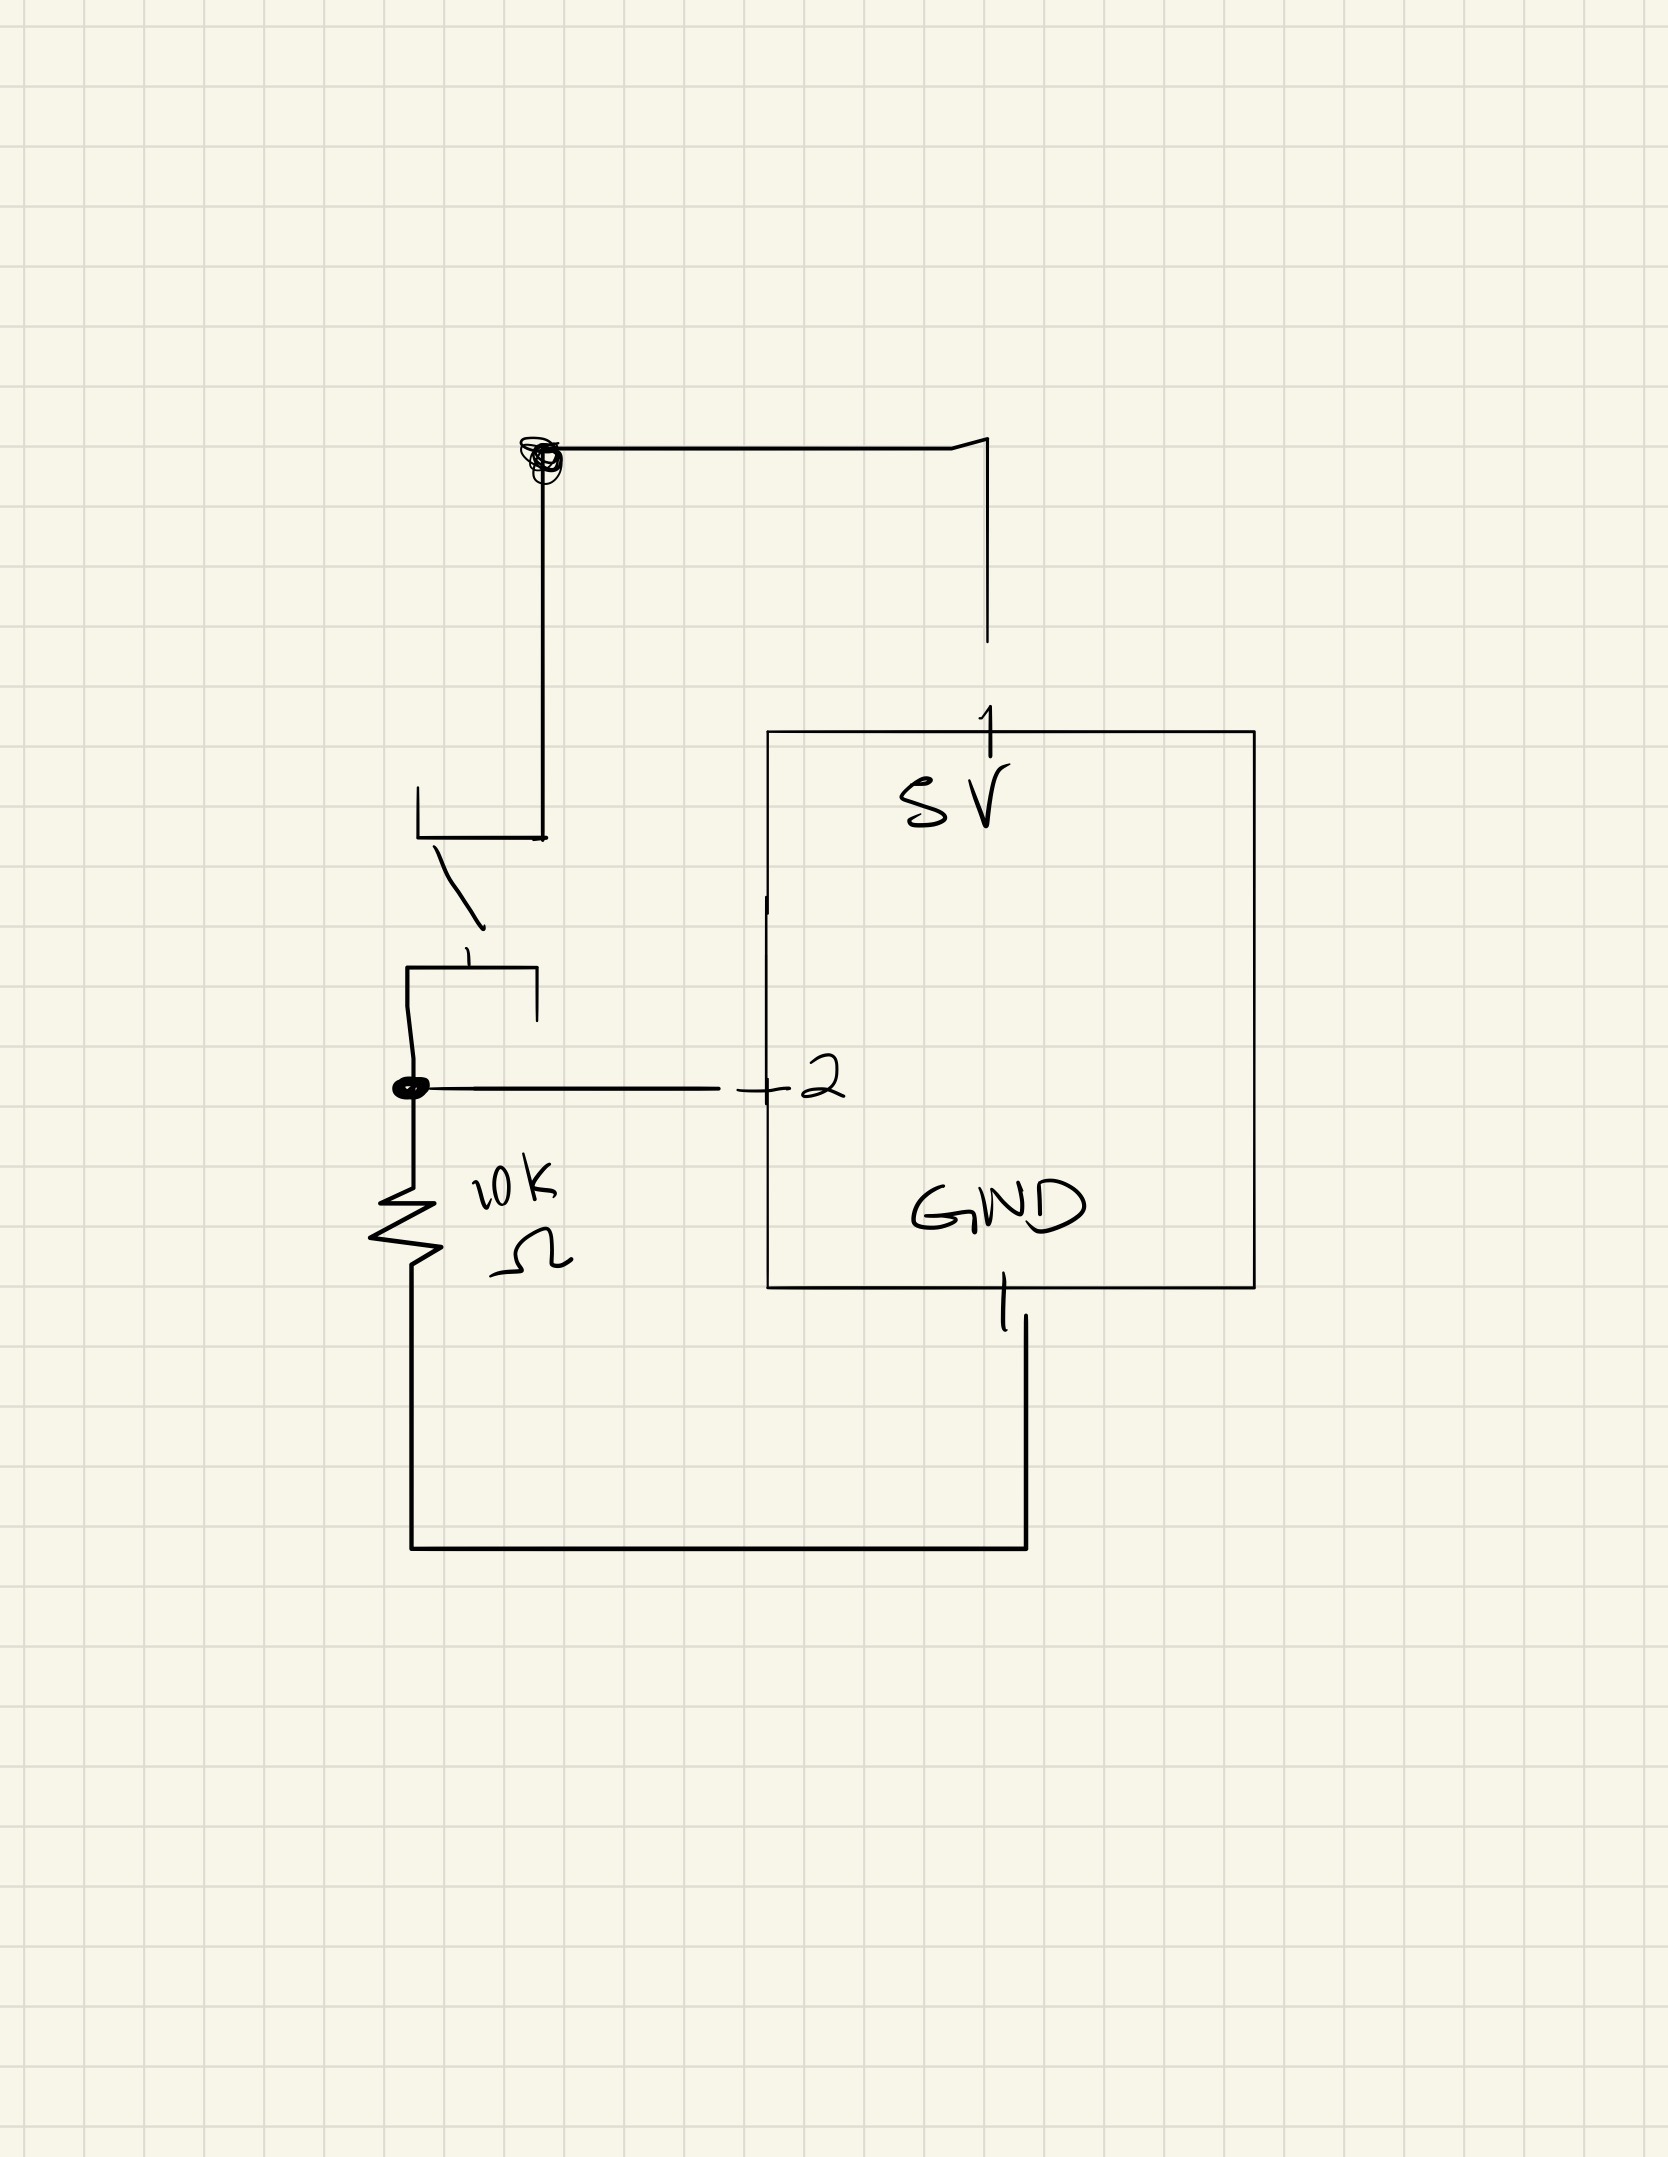 5V
2
10K
Ω
GND